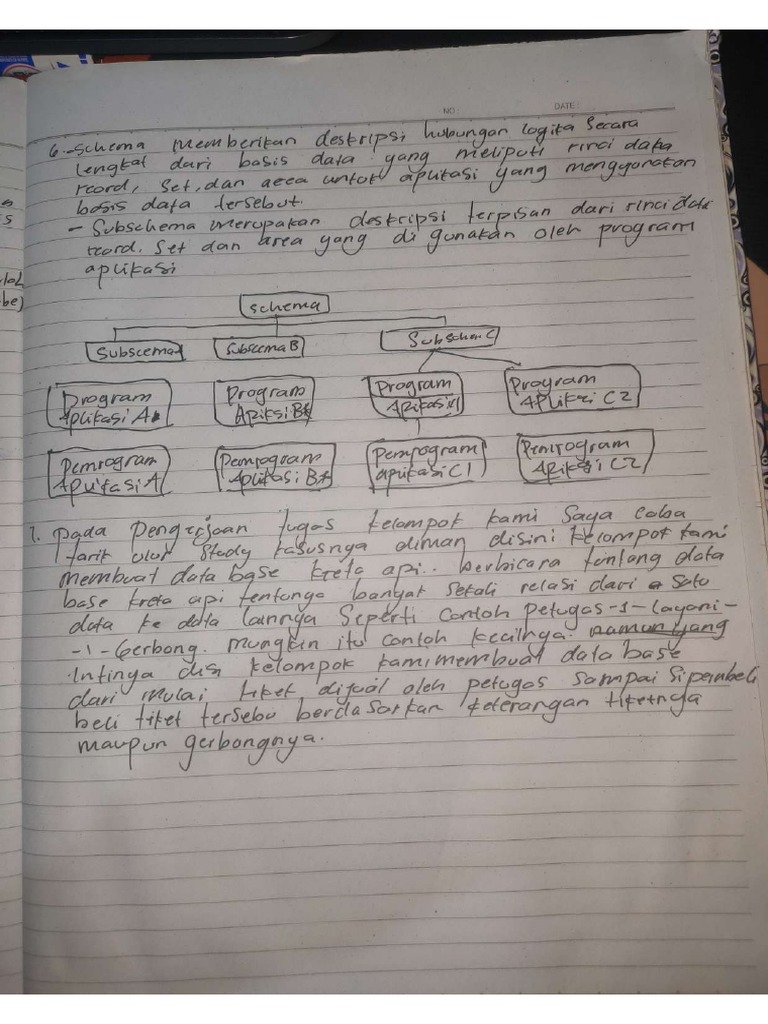 NO :
DATE :
6. - Schema memberikan deskripsi hubungan logika secara
lengkap dari basis data yang meliputi rinci data
record, set, dan area untuk aplikasi yang menggunakan
basis data tersebut.
- Subschema merupakan deskripsi terpisah dari rinci data
record. Set dan area yang di gunakan oleh program
aplikasi
be)
schema
Subscema A Subscema B Subschem C
Program Program Program Program
Aplikasi A Aplikasi C2
Pemrogram Pemrogram Pemrogram Pemrogram
Aplikasi A Aplikasi B aplikasi C1 Aplikasi C2
7. pada pengerjaan tugas kelompok kami saya coba
tarik ulur study kasusnya diman disini kelompok kami
membuat data base kreta api.. berbicara tentang data
base kreta api tentunga banyak sekali relasi dari satu
data ke data lainnya Seperti Contoh petugas-1-layani-
-1-Gerbong. mungkin itu contoh kecilnya. namun yang
Intinya kelompok kami membuat data base
dari mulai tiket dijual oleh petugas sampai si pembeli
beli tiket tersebu berdasarkan keterangan tiketnya
maupun gerbongnya.